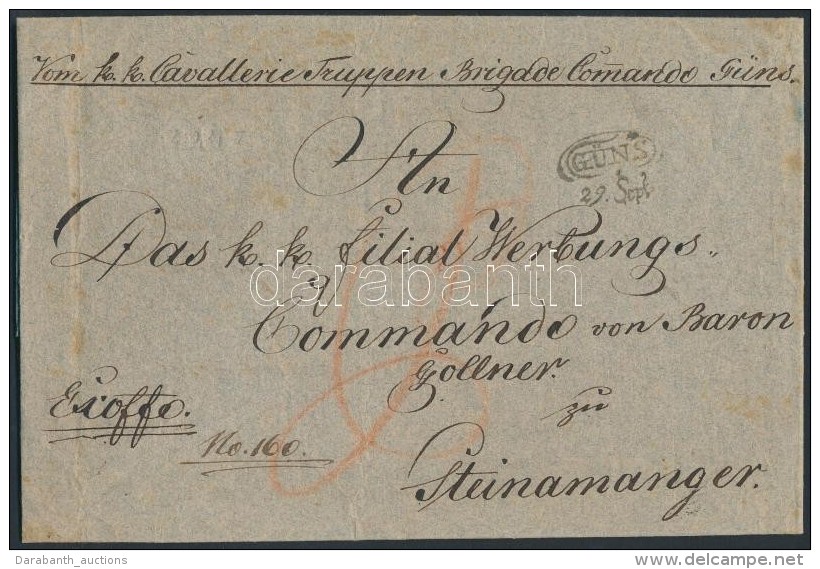 Vom k. k. Cavallerie Truppen Brigade Com̄ando Güns.
GÜNS
29. Sept
An
Das k. k. filial Werbungs„
Commando von Baron
Gollner.
zu
Exoffo.
No. 160.
Steinamanger.
darabanth
Darabanth_auctions
delcampe.net